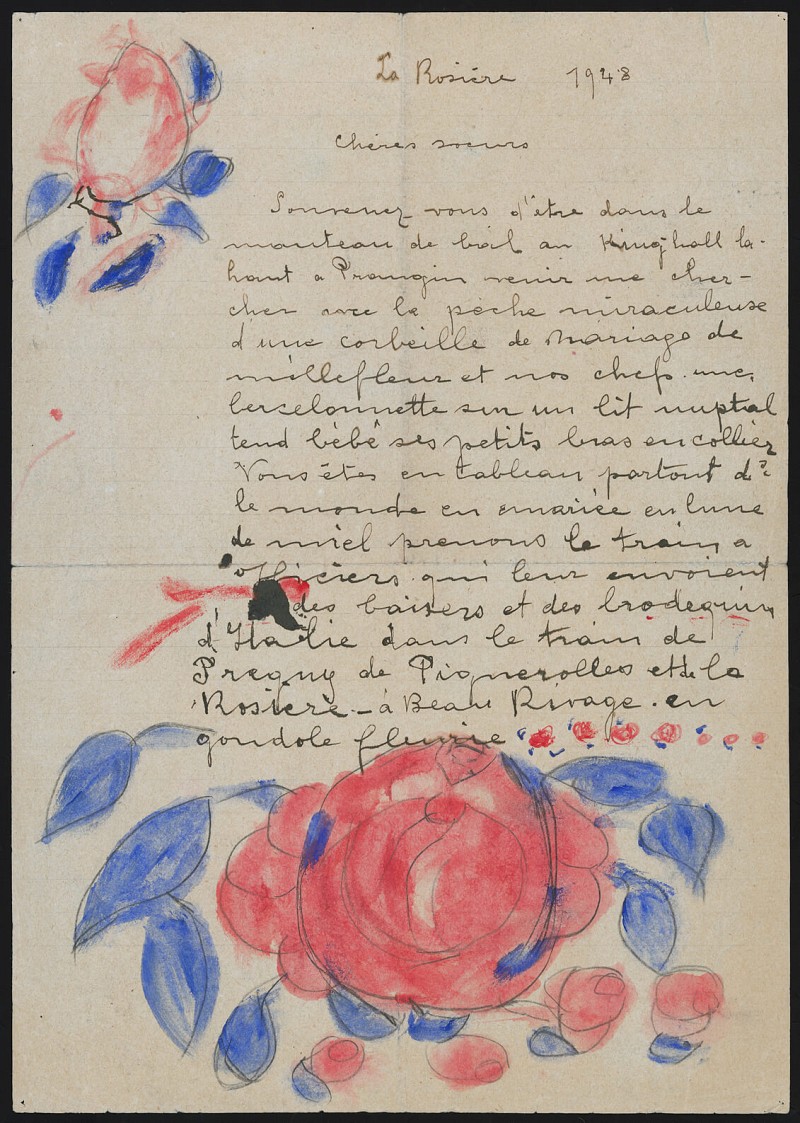 La Rosière 1948
Chères soeurs
Souvenez vous d'être dans le
manteau de bal au Kinghall la-
haut a Prangin venir me cher-
cher avec la pèche miraculeuse
d'une corbeille de mariage de
millefleur et nos chefs une
bercelonnette sur un lit nuptial
tend bébé ses petits bras en collier
Vous êtes en tableau partout ds
le monde en mariée en lune
de miel prenons le train a
officiers qui leur envoient
des baisers et des brodequins
d'Italie dans le train de
Pregny de Pignerolles et de la
Rosière - à Beau Rivage. en
gondole fleurie